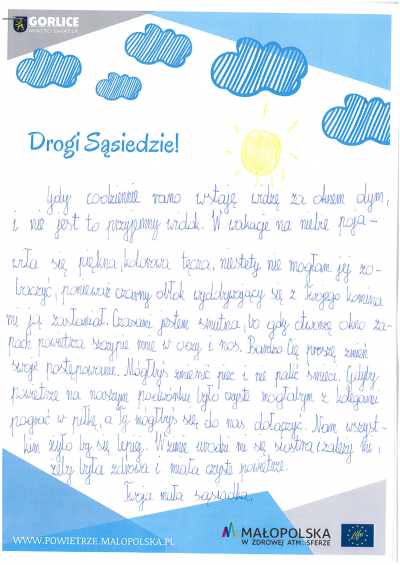 GORLICE
MIASTO ŚWIATŁA
Drogi Sąsiedzie!
Gdy codziennie rano wstaję widzę za oknem dym,
i nie jest to przyjemny widok. W wakacje na niebie poja-
wiła się piękna, kolorowa tęcza, niestety nie mogłam jej zo-
baczyć, ponieważ czarny obłok wydobywający się z Twojego komina
mi ją zasłaniał. Czasami jestem smutna, bo gdy otworzę okno za-
pach powietrza szczypie mnie w oczy i nos. Bardzo Cię proszę zmień
swoje postępowanie. Mógłbyś zmienić piec i nie palić śmieci. Gdyby
powietrze na naszym podwórku było czyste mogłabym z kolegami
pograć w piłkę, a Ty mógłbyś się do nas dołączyć. Nam wszyst-
kim żyło by się lepiej. W zimie urodzi mi się siostra i zależy mi,
żeby była zdrowa i miała czyste powietrze.
Twoja mała sąsiadka.
WWW.POWIETRZE.MALOPOLSKA.PL
MAŁOPOLSKA
W ZDROWEJ ATMOSFERZE
Life